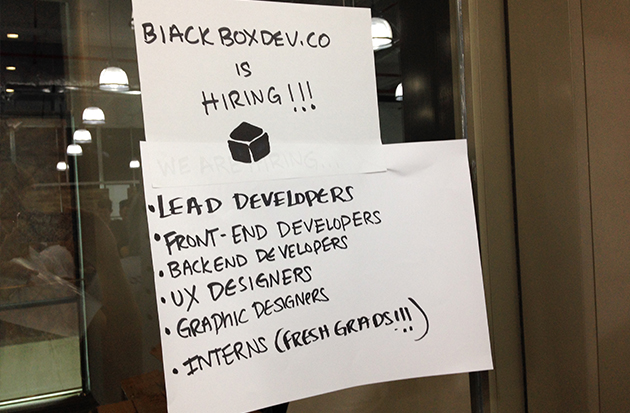 BlACKBOXDEV.CO
IS
HIRING!!!
WE ARE HIRING...
•LEAD DEVELOPERS
•FRONT-END DEVELOPERS
•BACKEND DEVELOPERS
•UX DESIGNERS
•GRAPHIC DESIGNERS
•INTERNS (FRESH GRADS!!!)